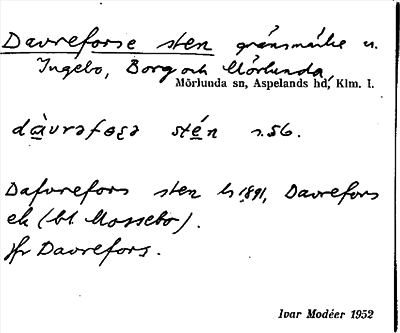 Davreforse sten gränsmärke m.
Ingebo, Borg och Mörlunda,
Mörlunda sn, Aspelands hd, Klm. l.
dàvrəfɷʂə stén s.56.
Dafverefors sten ls 1891, Davrefors
ek (bl. Mossebo).
Jfr Davrefors.
Ivar Modéer 1952